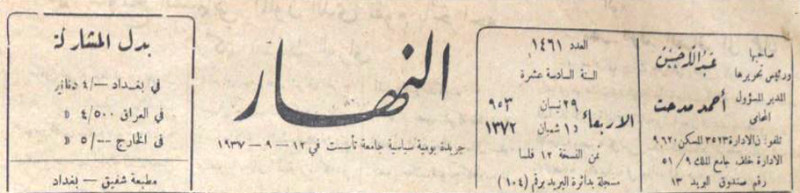 صاحبها
ورئيس تحريرها
عبد الله حسين
المدير المسؤول
المحامي
أحمد مدحت
تلفون: ٣٥٢٣ للمسكن ٩٦٢٠
الادارة خلف جامع الملك ٩ / ٥١
رقم صندوق البريد ١٣
العدد ١٤٦١
السنة السادسة عشرة
الاربعاء
٢٩ نيسان ٩٥٣
١٥ شعبان ١٣٧٢
ثمن النسخة ١٢ فلسا
مسجلة بدائرة البريد برقم (١٠٤)
النهار
جريدة يومية سياسية جامعة تأسست في ١٢ – ٩ – ١٩٣٧
بدل المشاركة
في بغداد –/٤ دنانير
في العراق ٤/٥٠٠ »
في الخارج –/٥ »
مطبعة شفيق – بغداد